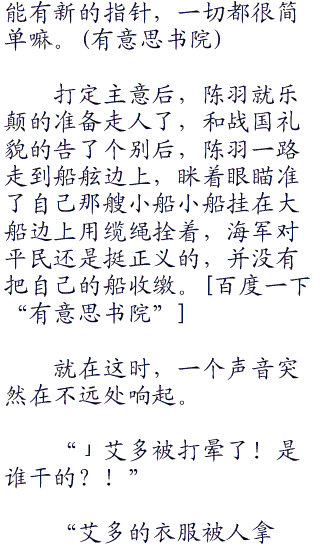 能有新的指针，一切都很简
单嘛。(有意思书院)
打定主意后，陈羽就乐
颠的准备走人了，和战国礼
貌的告了个别后，陈羽一路
走到船舷边上，眯着眼瞄准
了自己那艘小船小船挂在大
船边上用缆绳拴着，海军对
平民还是挺正义的，并没有
把自己的船收缴。[百度一下
“有意思书院”]
就在这时，一个声音突
然在不远处响起。
“」艾多被打晕了！是
谁干的？！”
“艾多的衣服被人拿